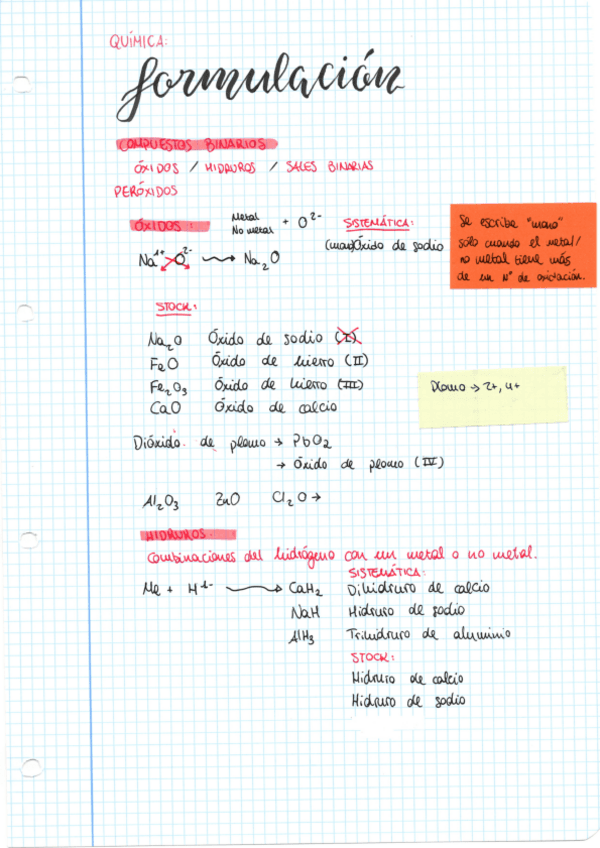 QUÍMICA:
formulación
COMPUESTOS BINARIOS
ÓXIDOS / HIDRUROS / SALES BINARIAS
PERÓXIDOS
ÓXIDOS:
Metal
No metal
+ O²⁻
SISTEMÁTICA:
Na¹⁺ O²⁻ → Na₂O
(mono)Óxido de sodio
Se escribe "mono"
sólo cuando el metal/
no metal tiene más
de un Nº de oxidación.
STOCK:
Na₂O Óxido de sodio (I)
FeO Óxido de hierro (II)
Fe₂O₃ Óxido de hierro (III)
CaO Óxido de calcio
Plomo → 2+, 4+
Dióxido de plomo → PbO₂
→ Óxido de plomo (IV)
Al₂O₃ ZnO Cl₂O →
HIDRUROS:
Combinaciones del hidrógeno con un metal o no metal.
SISTEMÁTICA:
Me + H¹⁻ → CaH₂ Dihidruro de calcio
NaH Hidruro de sodio
AlH₃ Trihidruro de aluminio
STOCK:
Hidruro de calcio
Hidruro de sodio